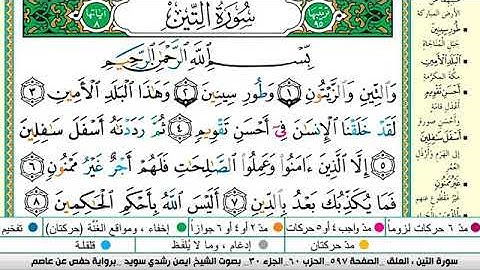 ترتيبها ٩٥
سُورَةُ التِّينِ
آياتها ٨
بِسْمِ اللَّهِ الرَّحْمَٰنِ الرَّحِيمِ
وَالتِّينِ وَالزَّيْتُونِ ١ وَطُورِ سِينِينَ ٢ وَهَٰذَا الْبَلَدِ الْأَمِينِ ٣
لَقَدْ خَلَقْنَا الْإِنسَانَ فِي أَحْسَنِ تَقْوِيمٍ ٤ ثُمَّ رَدَدْنَاهُ أَسْفَلَ سَافِلِينَ
٥ إِلَّا الَّذِينَ ءَامَنُوا وَعَمِلُوا الصَّالِحَاتِ فَلَهُمْ أَجْرٌ غَيْرُ مَمْنُونٍ ٦
فَمَا يُكَذِّبُكَ بَعْدُ بِالدِّينِ ٧ أَلَيْسَ اللَّهُ بِأَحْكَمِ الْحَاكِمِينَ ٨
الأرض المباركة
طُورِ سِينِينَ
جبل المناجاة
الْبَلَدِ الْأَمِينِ
مكة المكرمة
أَحْسَنِ تَقْوِيمٍ
وأحسن صورة
أَسْفَلَ سَافِلِينَ
إلى الهرم
وأرذل العمر
غَيْرُ مَمْنُونٍ
غير مقطوع عنهم
مدّ ٦ حركات لزوماً
مدّ ٢ أو ٤ أو ٦ جوازاً
مدّ واجب ٤ أو ٥ حركات
مدّ حركتان
إخفاء، ومواقع الغُنَّة (حركتان)
إدغام، وما لا يُلفَظ
تفخيم
قلقلة
سورة التين، العلق . الصفحة ٥٩٧ . الحزب ٦٠ . الجزء ٣٠ . بصوت الشيخ ايمن رشدي سويد . برواية حفص عن عاصم